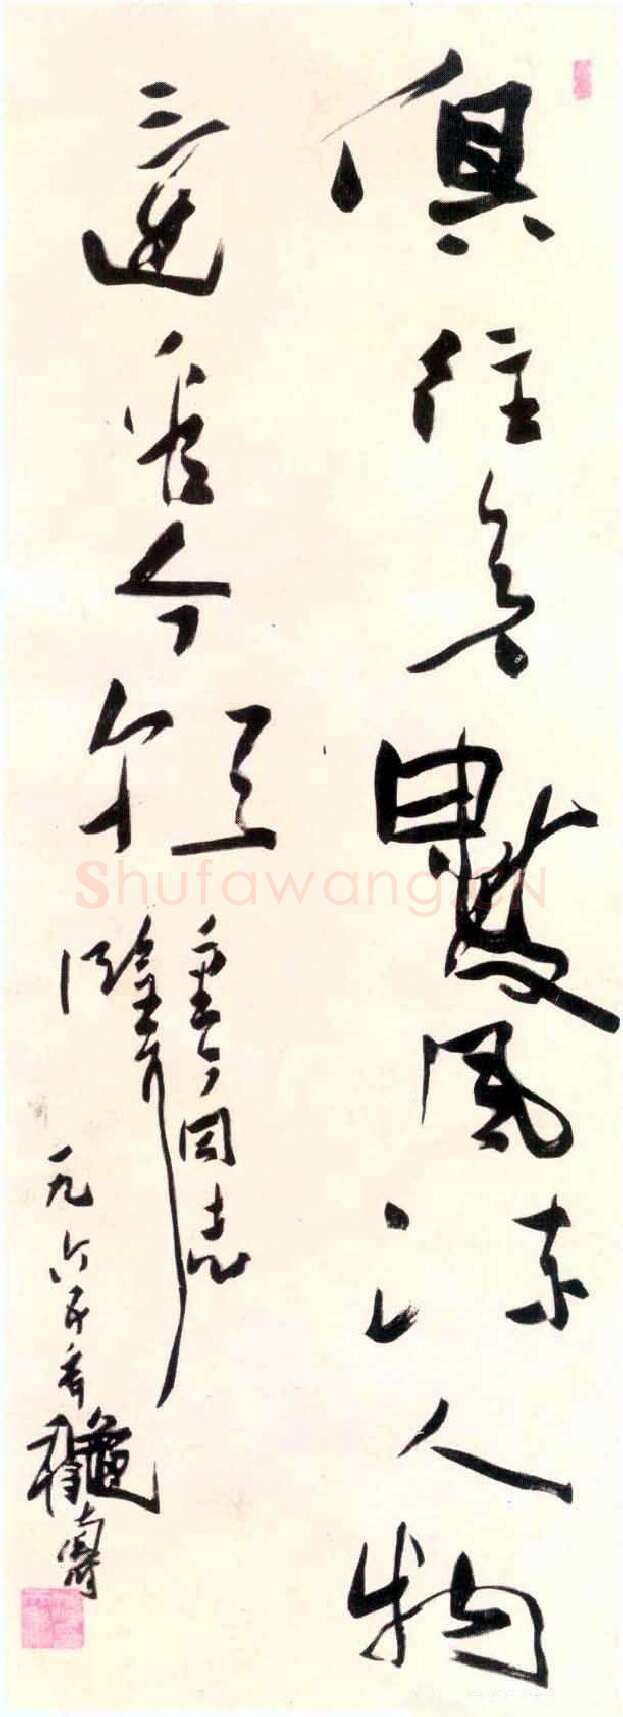 俱往矣數風流人物
還看今朝
同志
一九六五春
Shufawang.CN